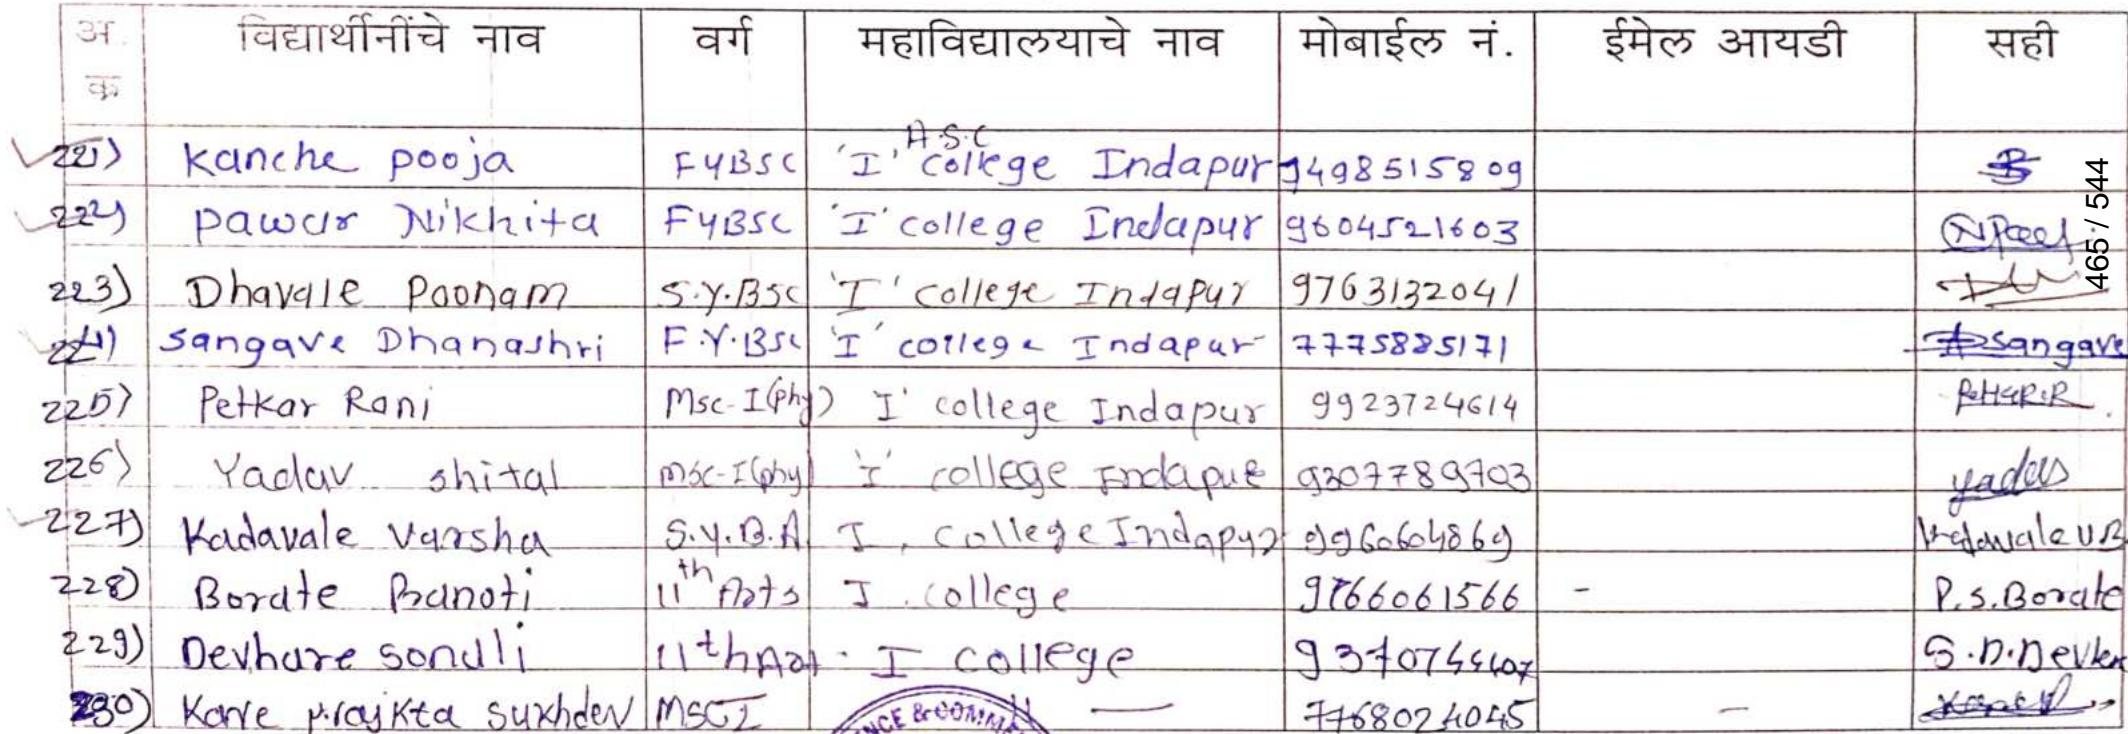 अ. विद्यार्थीनींचे नाव वर्ग महाविद्यालयाचे नाव मोबाईल नं. ईमेल आयडी सही
क
A.S.C
221) Kanche pooja FYBSC 'I' college Indapur 9498515809
222) pawar Nikhita FYBSC 'I' college Indapur 9604521603
465 / 544
223) Dhavale Poonam S.Y.BSC 'I' college Indapur 9763132041
224) Sangave Dhanashri F.Y.BSC 'I' college Indapur 7775885171 Sangave
225) Petkar Rani Msc-I(phy) I' college Indapur 9923724614
226) Yadav shital Msc-I(phy) 'I' college Indapur 9307789703 yadav
227) Kadavale Varsha S.Y.B.A I, college Indapur 9960604869 Kadavale V.B.
228) Borate 11th Arts I. college 9766061566 - P.S.Borate
229) Devhare sonali 11th Art. I college S.D.
230) Kare prajkta sukhdev MSCI — 7768024045 —